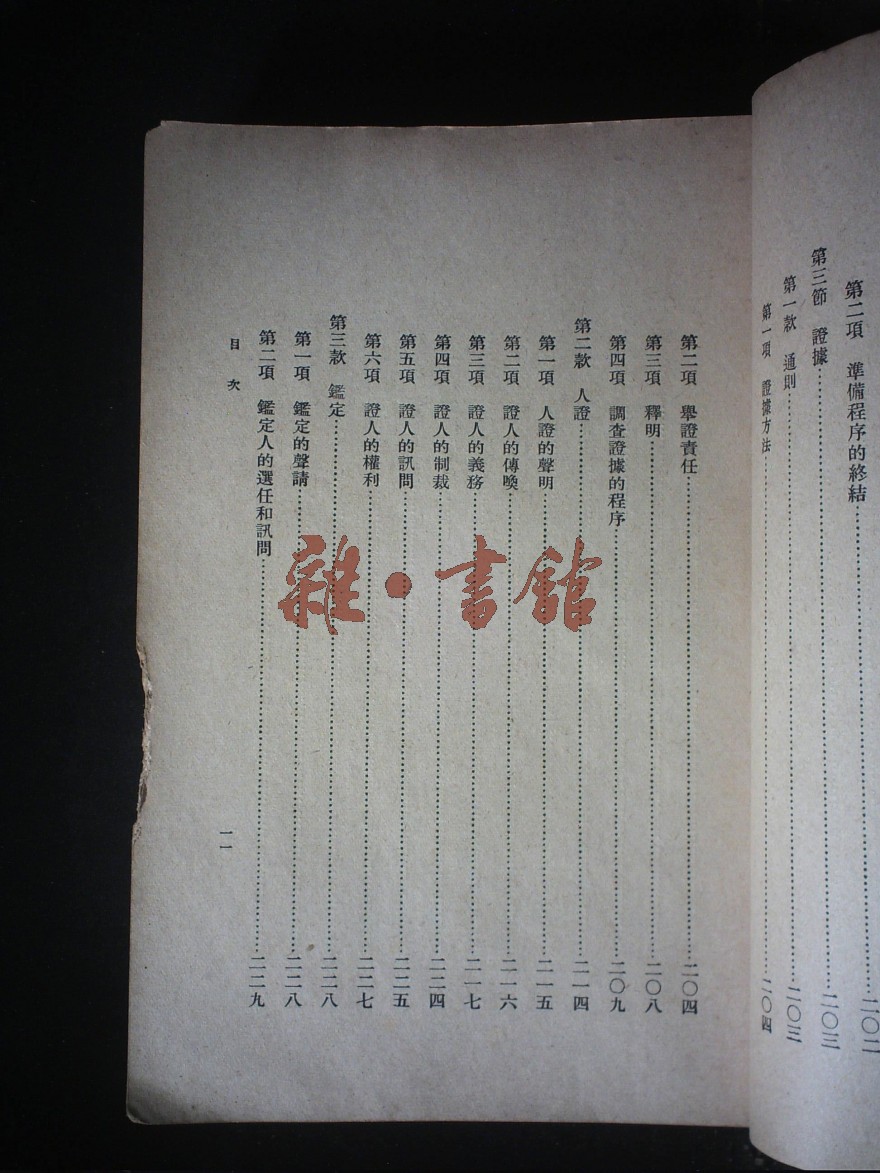 第二項　準備程序的終結……二〇二
第三節　證據……二〇三
第一款　通則……二〇三
第一項　證據方法……二〇四
第二項　舉證責任……二〇四
第三項　釋明……二〇八
第四項　調查證據的程序……二〇九
第二款　人證……二一四
第一項　人證的聲明……二一五
第二項　證人的傳喚……二一六
第三項　證人的義務……二一七
第四項　證人的制裁……二二四
第五項　證人的訊問……二二五
第六項　證人的權利……二二七
第三款　鑑定……二二八
第一項　鑑定的聲請……二二八
第二項　鑑定人的選任和訊問……二二九
目次
一一
雜·書館